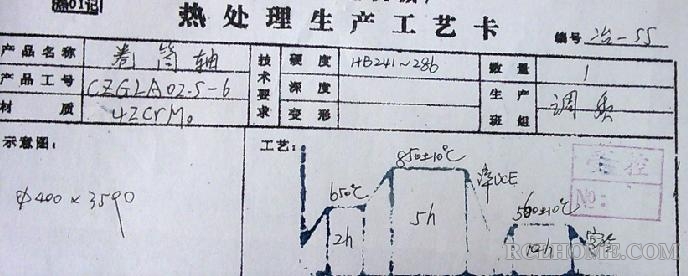 热处理生产工艺卡
编号 冶-55
产品名称 卷筒轴 技术要求 硬度 HB241~286 数量 1
产品工号 CZGLA02.5-6 深度 生产班组 调质
材质 42CrMo 变形
示意图: 工艺:
850±10℃
650℃
580±10℃
φ400×3590
2h 5h
空冷
NO:
RCLHOME.COM